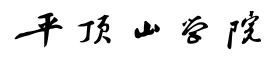 平顶山学院